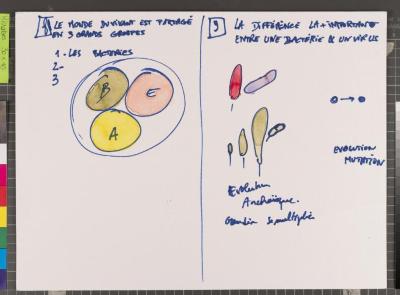 LE MONDE DU VIVANT EST PARTAGÉ
EN 3 GRANDS GROUPES
1- LES BACTERIES
2-
3
B
E
A
9
LA DIFFÉRENCE LA + IMPORTANTE
ENTRE UNE BACTÉRIE & UN VIRUS
EVOLUTION
MUTATION
Evolution
Archaïque.
Grandir se multiplier